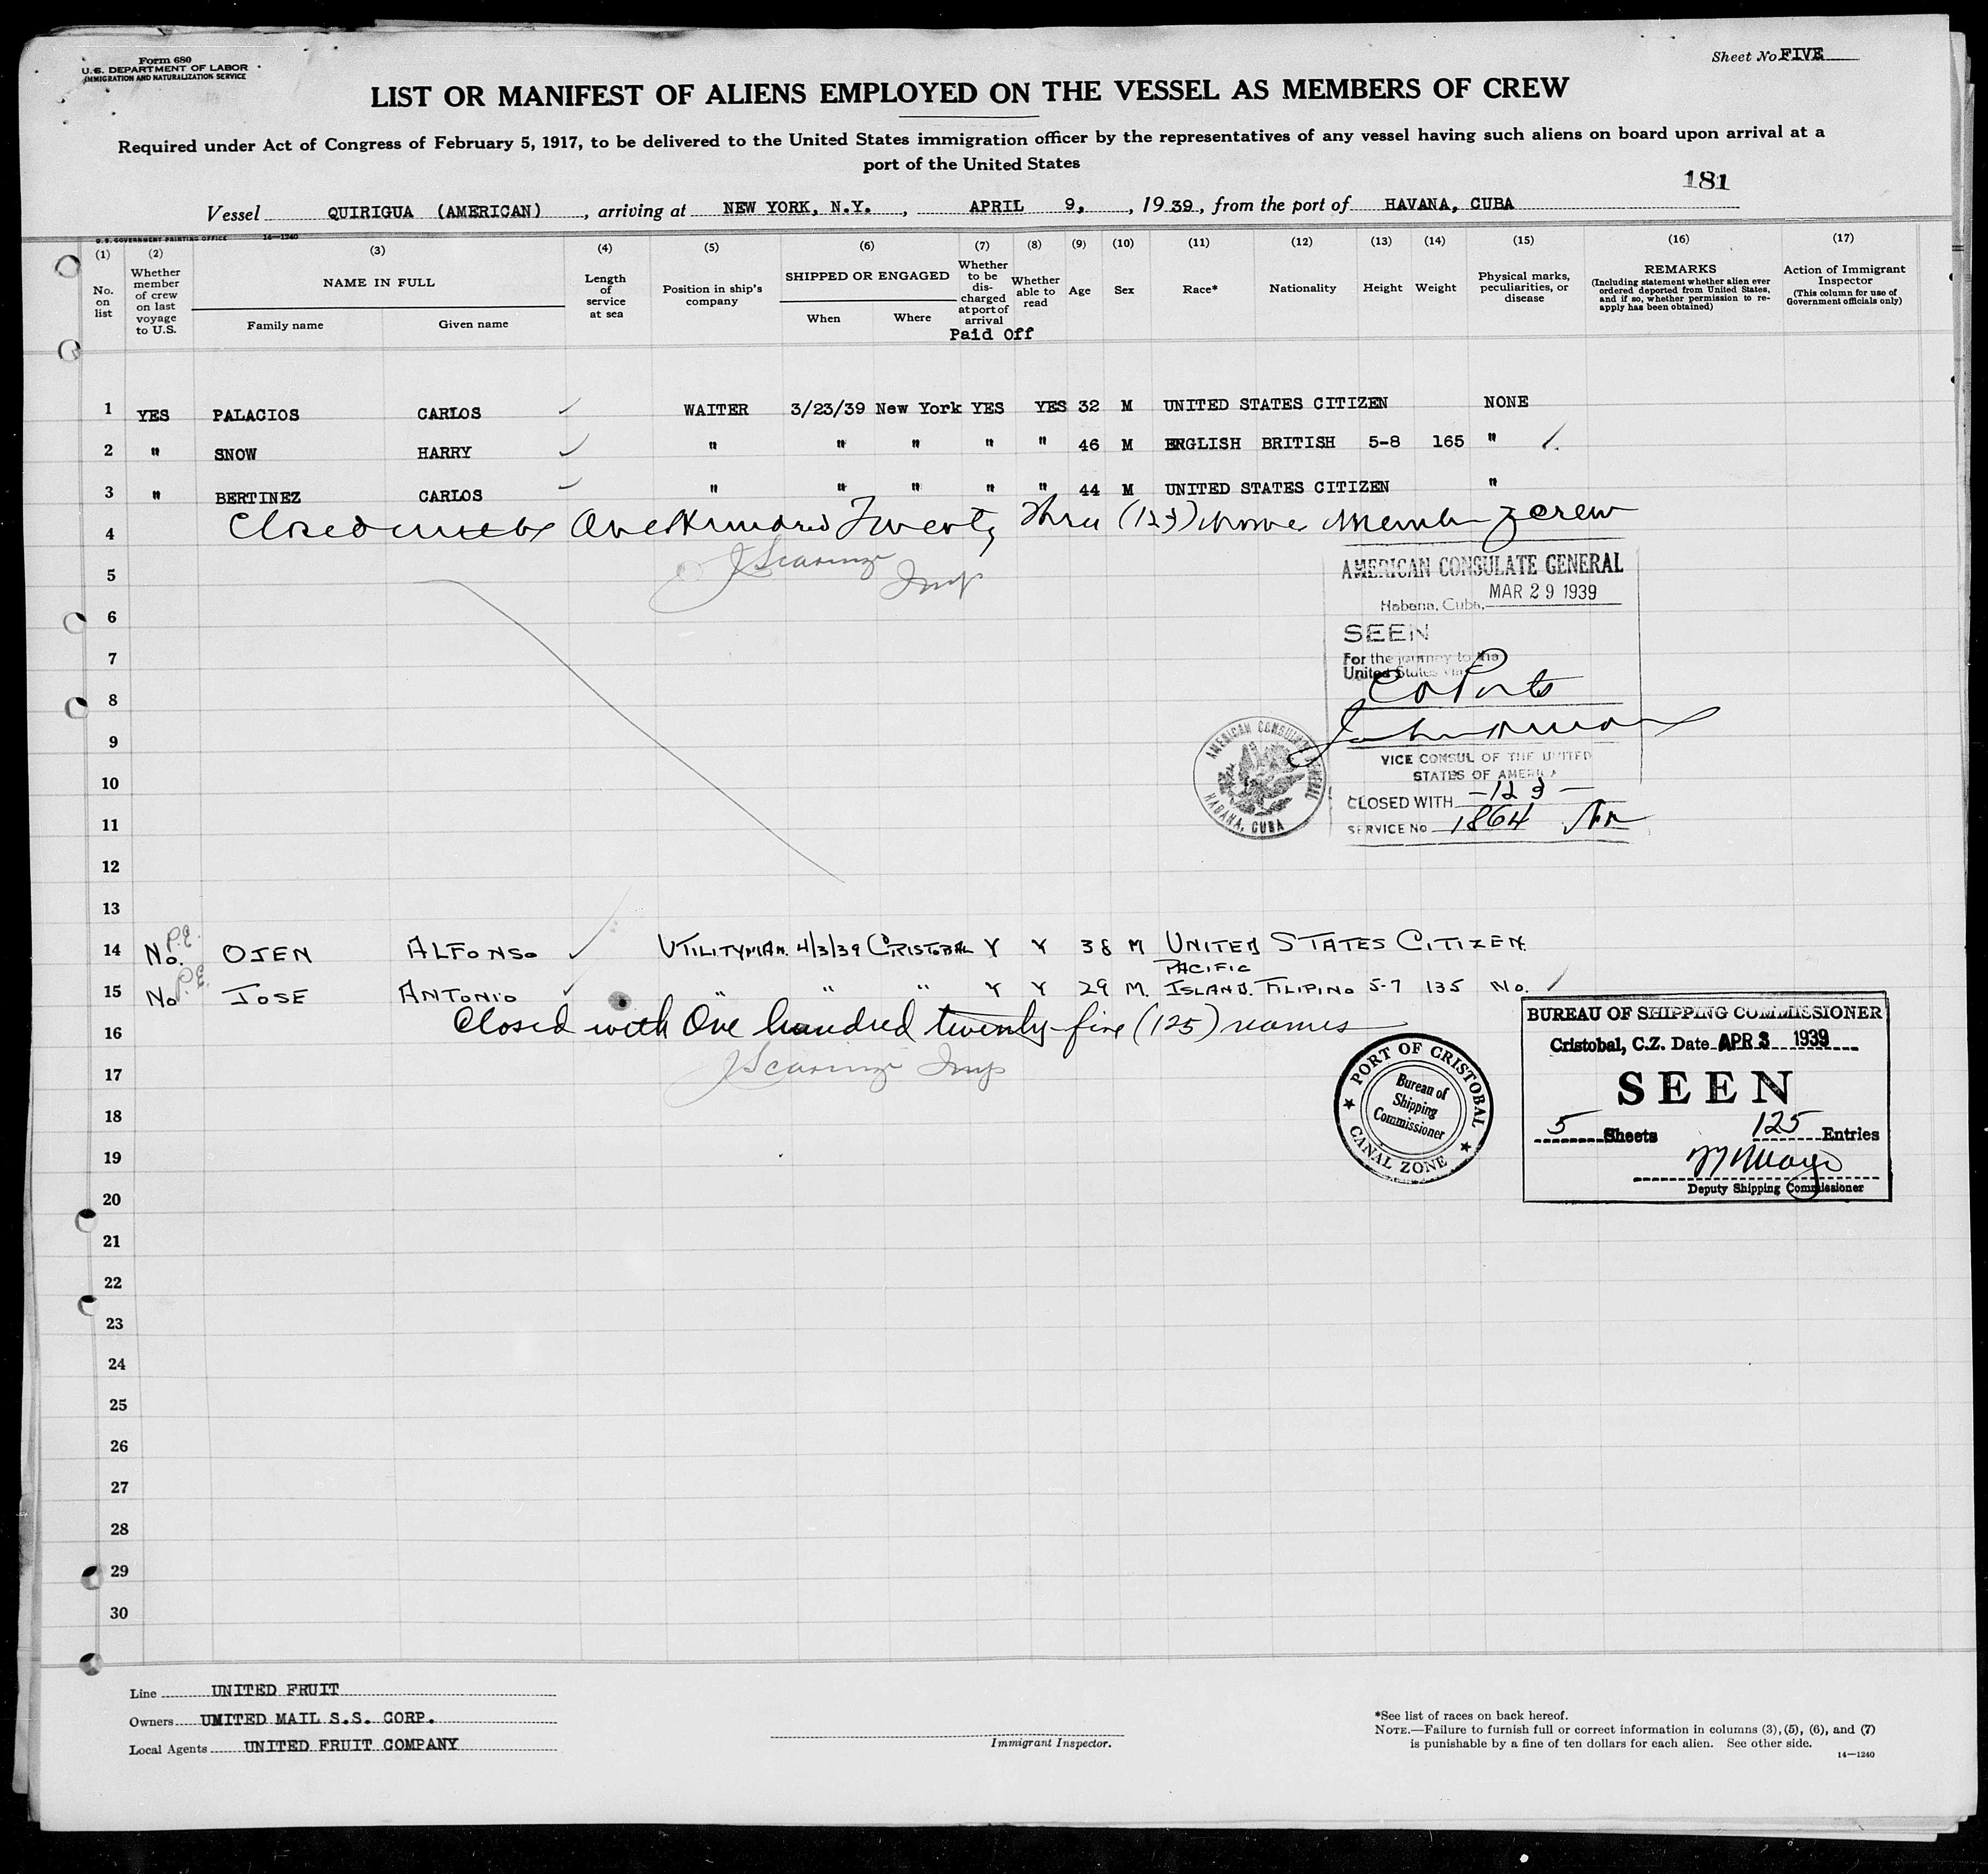 Form 680
U. S. DEPARTMENT OF LABOR
IMMIGRATION AND NATURALIZATION SERVICE
Sheet No. FIVE
LIST OR MANIFEST OF ALIENS EMPLOYED ON THE VESSEL AS MEMBERS OF CREW
Required under Act of Congress of February 5, 1917, to be delivered to the United States immigration officer by the representatives of any vessel having such aliens on board upon arrival at a
port of the United States
181
Vessel QUIRIGUA (AMERICAN), arriving at NEW YORK, N.Y., APRIL 9, , 1939, from the port of HAVANA, CUBA
U. S. GOVERNMENT PRINTING OFFICE 14—1240
(1) (2) (3) (4) (5) (6) (7) (8) (9) (10) (11) (12) (13) (14) (15) (16) (17)
No. on list
Whether member of crew on last voyage to U.S.
NAME IN FULL
Family name
Given name
Length of service at sea
Position in ship's company
SHIPPED OR ENGAGED
When
Where
Whether to be discharged at port of arrival
Paid Off
Whether able to read
Age
Sex
Race*
Nationality
Height
Weight
Physical marks, peculiarities, or disease
REMARKS
(Including statement whether alien ever ordered deported from United States, and if so, whether permission to re-apply has been obtained)
Action of Immigrant Inspector
(This column for use of Government officials only)
1 YES PALACIOS CARLOS WAITER 3/23/39 New York YES YES 32 M UNITED STATES CITIZEN NONE
2 " SNOW HARRY " " " " " 46 M ENGLISH BRITISH 5-8 165 "
3 " BERTINEZ CARLOS " " " " " 44 M UNITED STATES CITIZEN "
4 Closed One Hundred Twenty Three (123) crew
5
AMERICAN CONSULATE GENERAL
Habana, Cuba, MAR 29 1939
6
SEEN
7
For the journey to the
United States via
8
9
AMERICAN CONSULATE GENERAL
HABANA, CUBA
VICE CONSUL OF THE UNITED
STATES OF AMERICA
10
CLOSED WITH -123-
11
SERVICE No 1864
12
13
14 No. P.E. OJEN ALFONSO UTILITYMAN. 4/3/39 CRISTOBAL Y Y 38 M UNITED STATES CITIZEN
15 No P.E. JOSE ANTONIO " " " Y Y 29 M. PACIFIC ISLAND. FILIPINO 5-7 135 No.
16 Closed with One hundred twenty-five (125) names
17
BUREAU OF SHIPPING COMMISSIONER
Cristobal, C.Z. Date APR 3 1939
SEEN
5 Sheets 125 Entries
Deputy Shipping Commissioner
PORT OF CRISTOBAL
Bureau of
Shipping
Commissioner
CANAL ZONE
18
19
20
21
22
23
24
25
26
27
28
29
30
Line UNITED FRUIT
Owners UMITED MAIL S.S. CORP.
Local Agents UNITED FRUIT COMPANY
Immigrant Inspector.
*See list of races on back hereof.
NOTE.—Failure to furnish full or correct information in columns (3), (5), (6), and (7)
is punishable by a fine of ten dollars for each alien. See other side.
14—1240